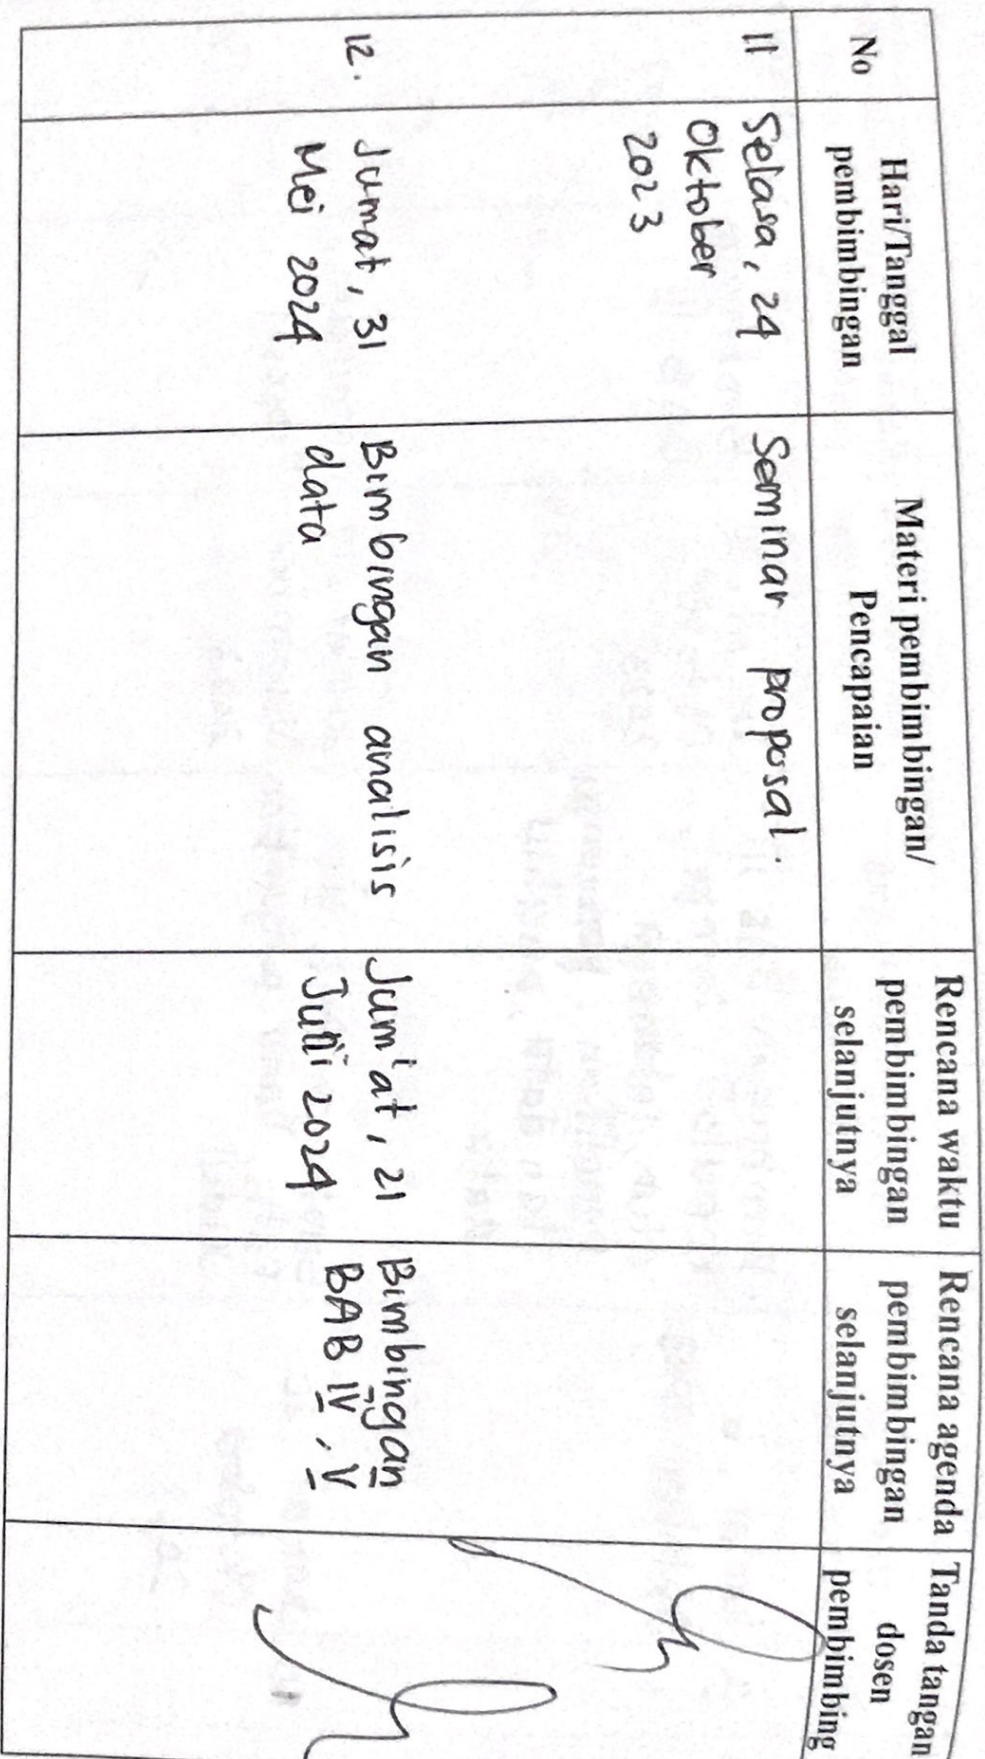 No
Hari/Tanggal
pembimbingan
Materi pembimbingan/
Pencapaian
Rencana waktu
pembimbingan
selanjutnya
Rencana agenda
pembimbingan
selanjutnya
Tanda tangan
dosen
pembimbing
11
Selasa, 24
Oktober
2023
Seminar proposal.
12.
Jumat, 31
Mei 2024
Bimbingan analisis
data
Jum'at, 21
Juni 2024
Bimbingan
BAB IV, V